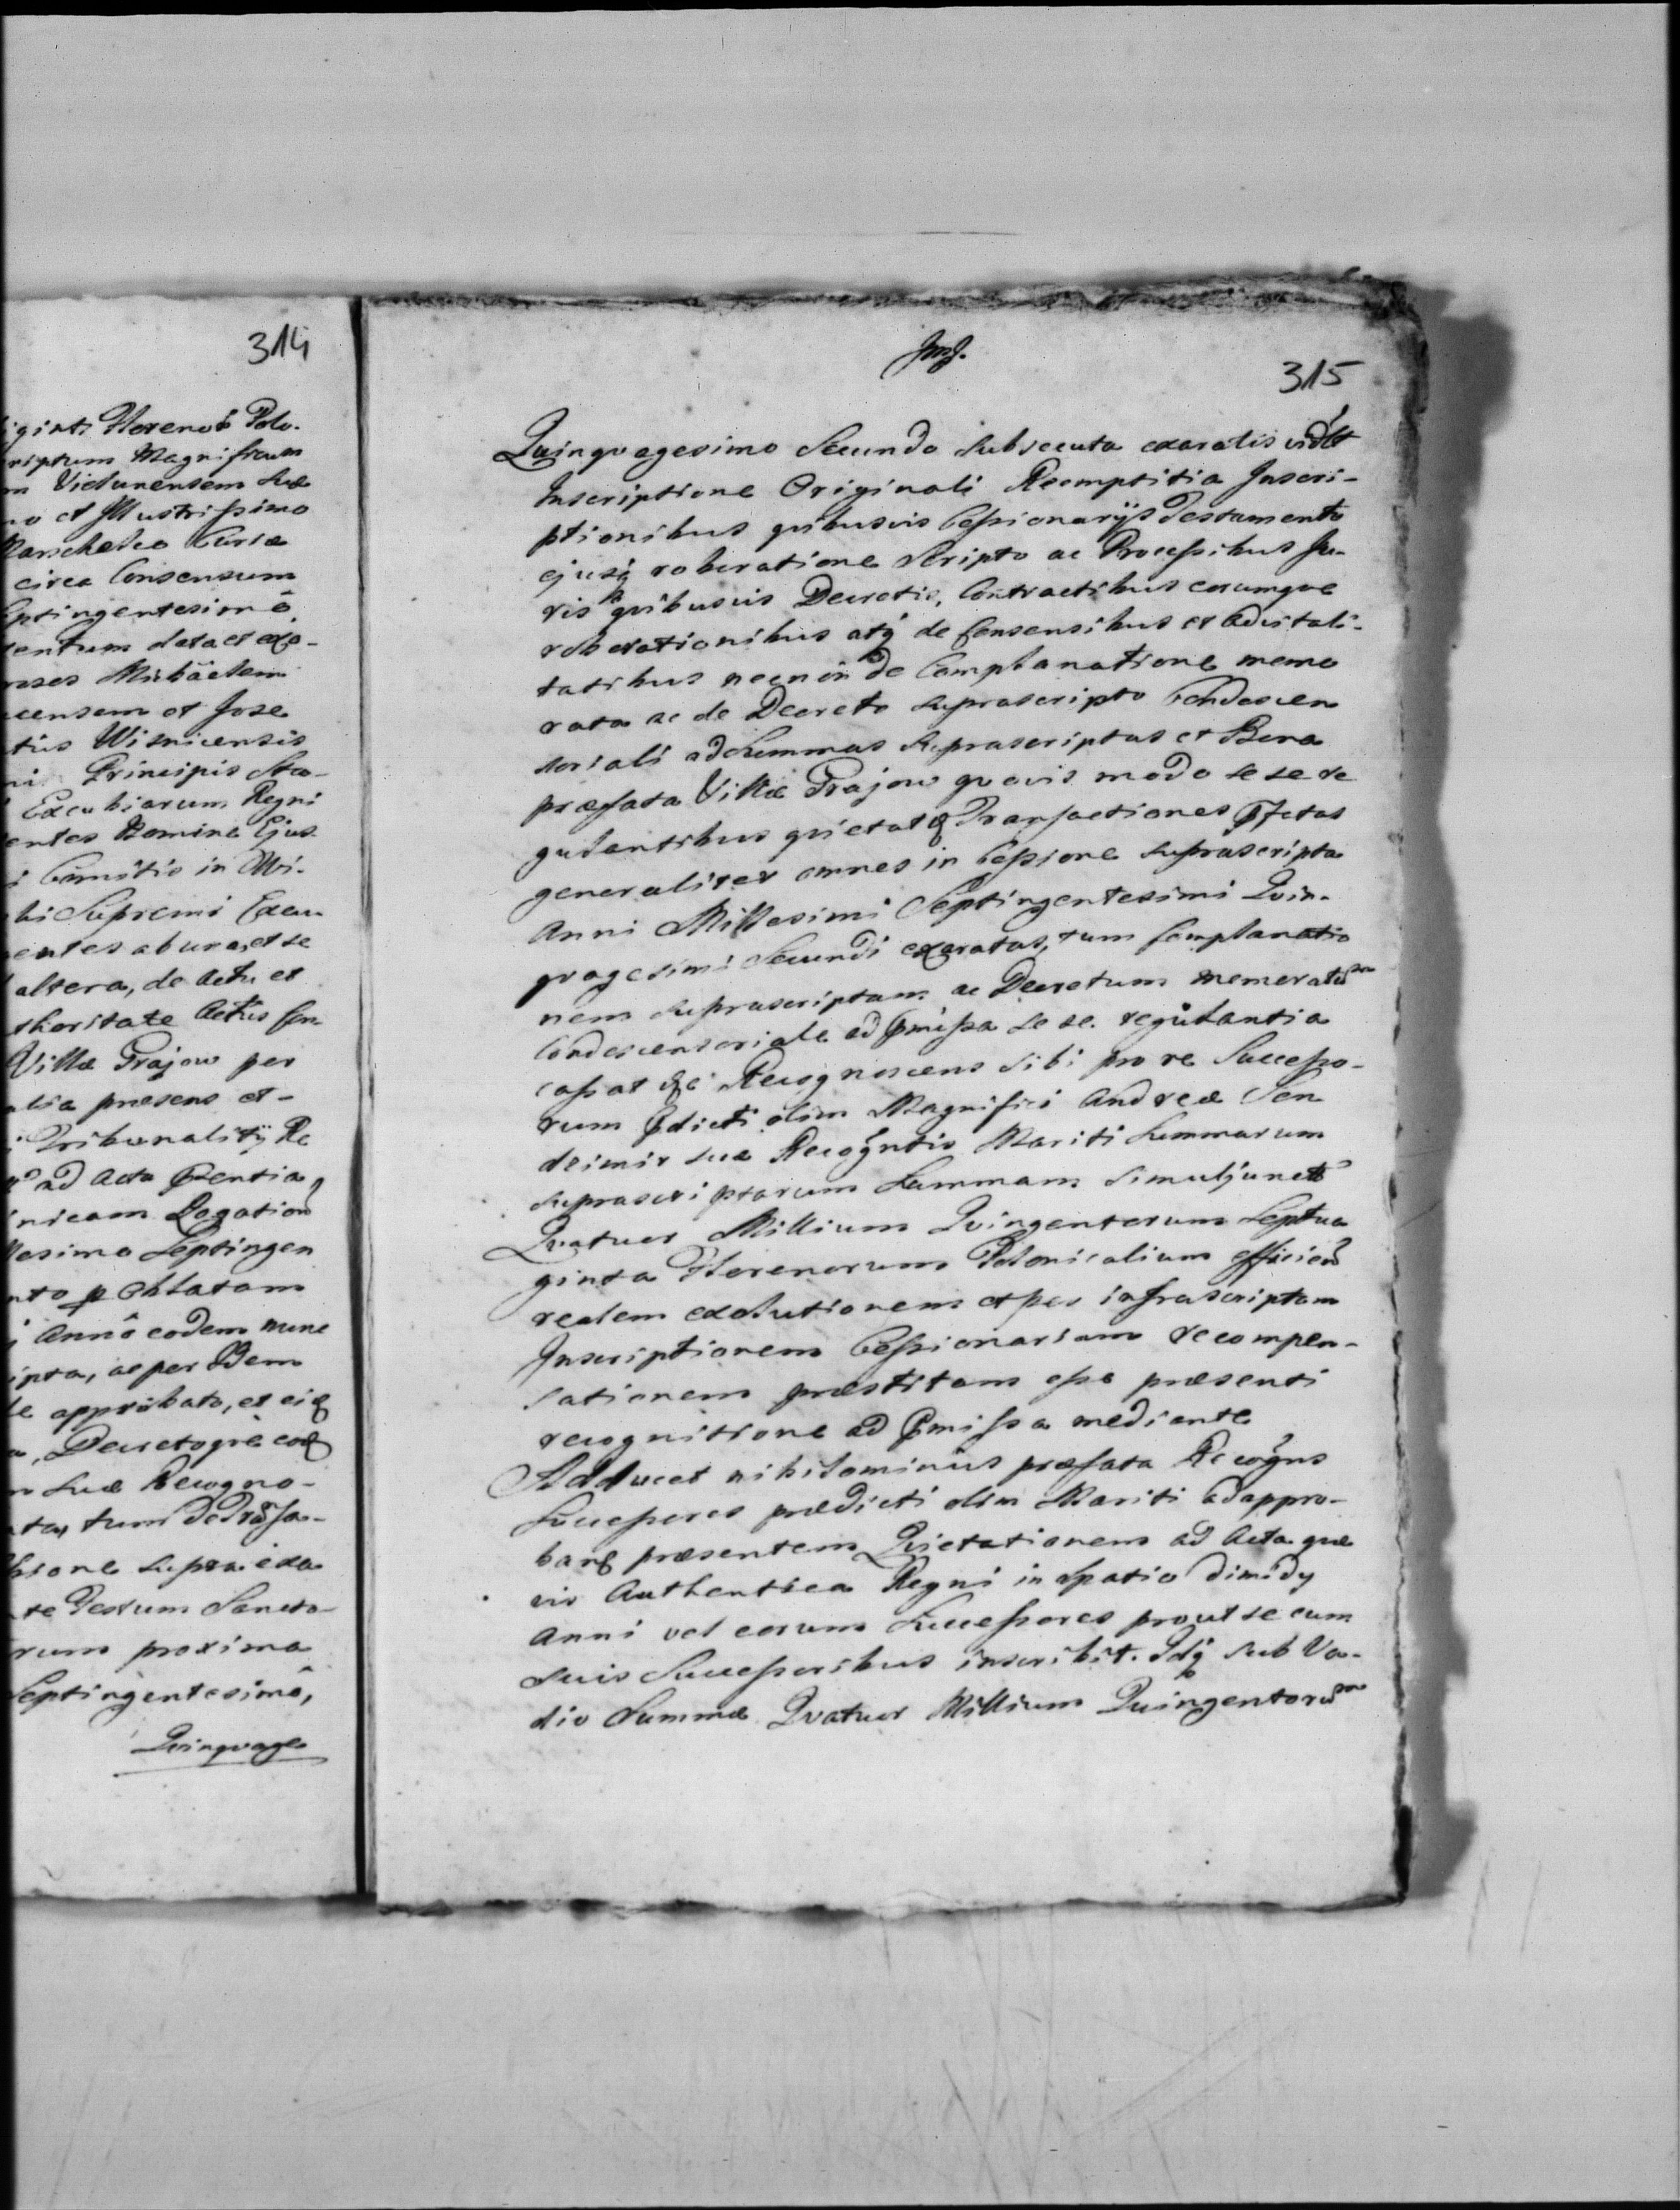 314
iginti Florenos Polo-
riptum Magnificum
m Vielunensem Suæ
no et Illustrissimo
Marschalco Curiæ
circa Consensum
ptingentesimô
entum data et exa-
roses Michäelem
censem et Joze
tus Wisnicensis
ni Principis
Excubiarum Regni
entes Nomine Ejus
i Comitis in Wi-
bi Supremi Excu
entes ab una, et se
altera, de Actu et
thoritate Actûs
Villæ Prajow per
alia præsens et-
i Tribunalitÿ Re
ad Acta
inicam Rogation
lesimo Septingen
nto Oblatam
i Annô eodem nunc
ipta, ac per
le approbato, et
a, Decretoqrè
n Suæ Recogno-
tum
ssione supra exa
te Festum Sancto-
rum proxima
Septingentesimô,
Quinquage
315
Quinquagesimo Secundo subsecuta exaratis vidlt
Inscriptione Originali Reemptitia Inscri-
ptionibus quibusvis Cessionarÿs Testamento
ejusq roboratione Scripto ac Processibus Ju-
ris quibusvis Decretis, Contractibus eorumque
roborationibus atq de Consensibus et Advitali-
tatibus necnon de Complanatione memo
rata ac de Decreto suprascripto Condescen
soriali ad Summas Suprascriptas et Bona
præfata Villæ Prajow quovis modo se se re
gulantibus quietat Transactiones
generaliter omnes in Cessione suprascripta
Anni Millesimi Septingentesimi Quin-
quagesimi Secundi exaratas, tum Complanatio
nem suprascriptam ac Decretum memoratum
Condescensoriale ad pmissa se se regulantia
cassat Recognoscens Sibi pro re Successo-
rum pdicti olim Magnifici Andreæ Sen
deimir suæ Recogntis Mariti Summarum
suprascriptarum Summam simul junct
Quatuor Millium Quingentorum Septua
ginta Florenorum Polonicalium efficien
realem exolutionem et per infrascriptam
Inscriptionem Cessionariam recompen-
sationem præstitam esse præsenti
recognitione ad pmissa mediante
Adducet nihilominus præfata Recogns
Successores prædicti olim Mariti ad appro-
band præsentem Quietationem ad Acta quæ
vis Authentica Regni in spatio dimidÿ
Anni vel eorum Successores prout se cum
suis Successoribus inscribit. Idq sub Va-
dio Summæ Quatuor Millium Quingentorum